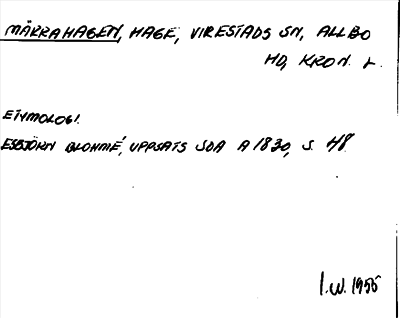 MÄRRAHAGEN, HAGE, VIRESTADS SN, ALLBO
HD, KRON. L.
ETYMOLOGI.
ESBJÖRN BLOHMÉ, UPPSATS SDA A 1830, S. 48.
I.W. 1956